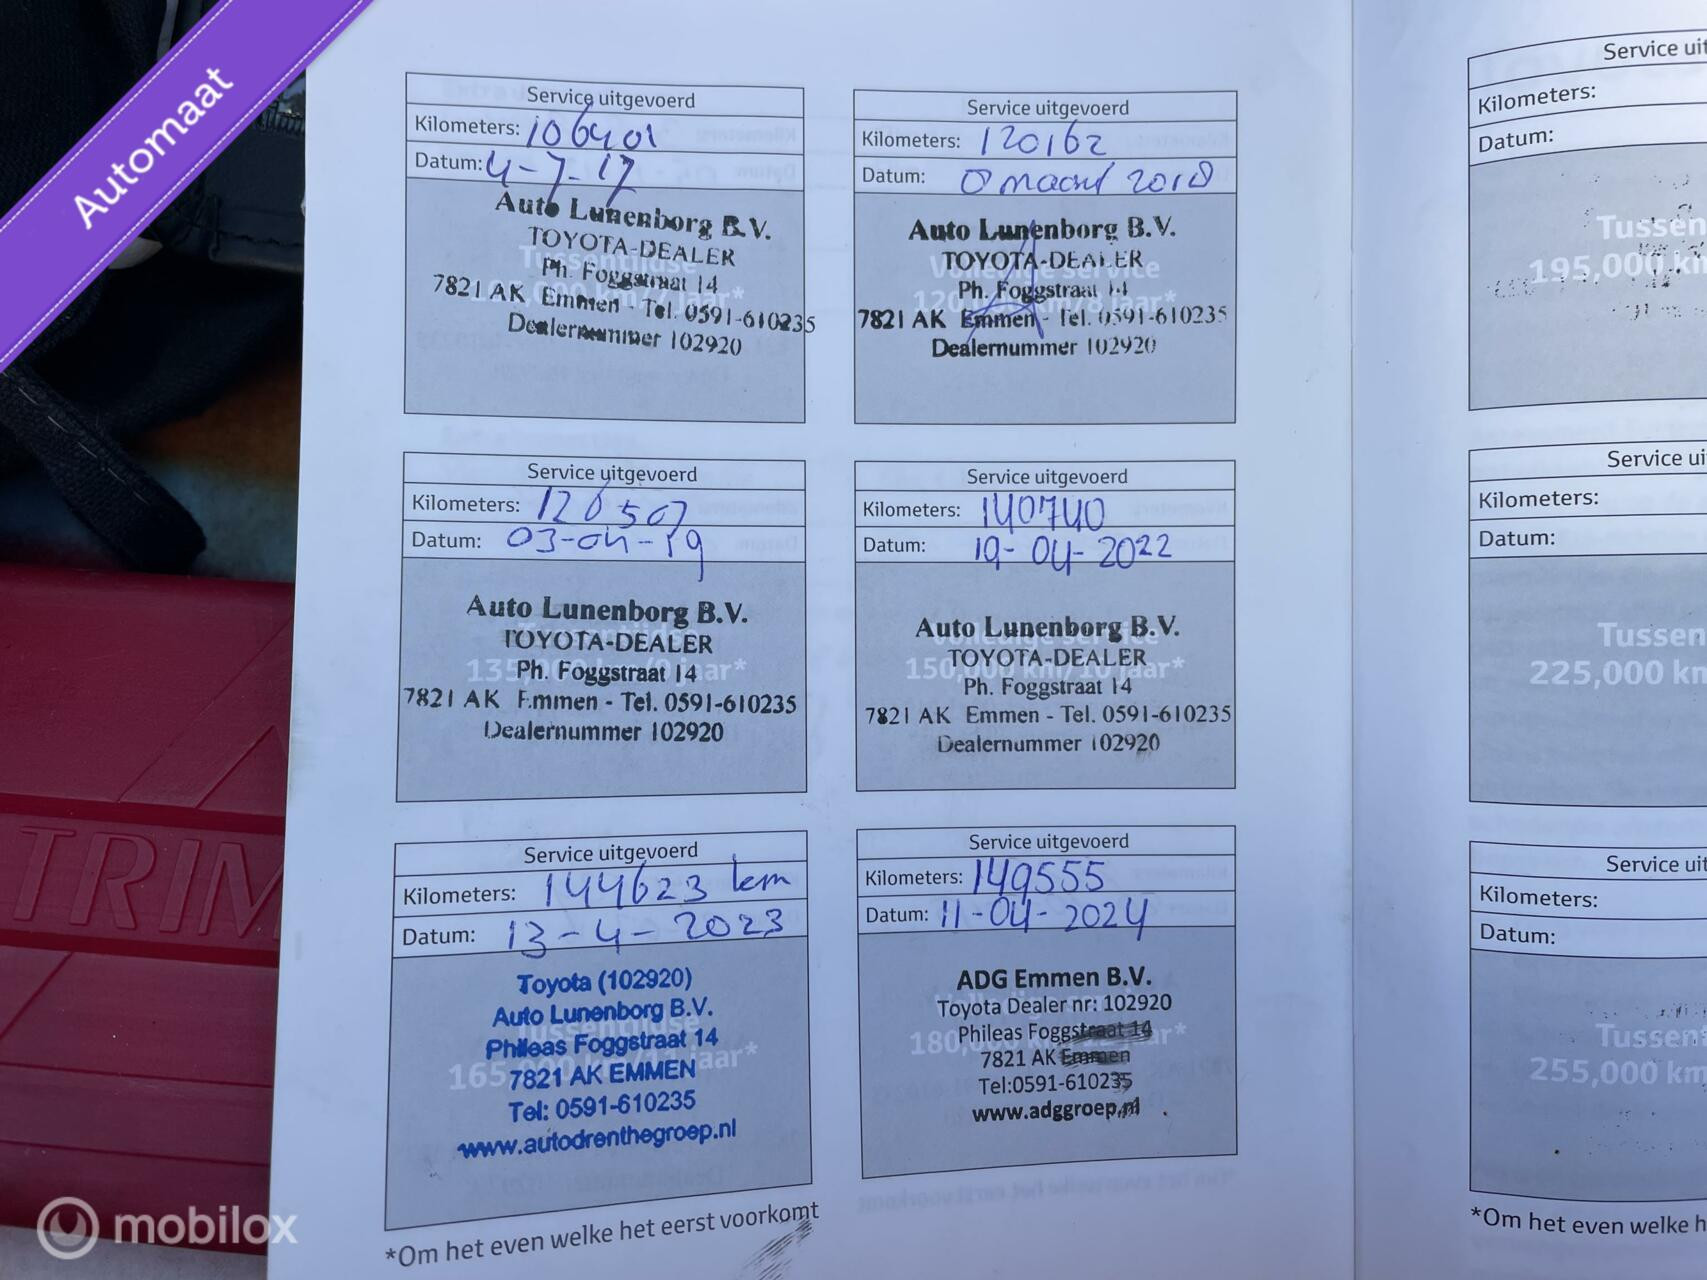 Automaat
Service uitgevoerd
Kilometers: 106401
Datum: 4-7-17
Auto Lunenborg B.V.
TOYOTA-DEALER
Ph. Foggstraat 14
7821 AK Emmen - Tel. 0591-610235
Dealernummer 102920
Service uitgevoerd
Kilometers: 120162
Datum: maart 2018
Auto Lunenborg B.V.
TOYOTA-DEALER
Ph. Foggstraat 14
7821 AK Emmen - Tel. 0591-610235
Dealernummer 102920
Service uitgevoerd
Kilometers: 126507
Datum: 03-04-19
Auto Lunenborg B.V.
TOYOTA-DEALER
135,000 km/9 jaar*
Ph. Foggstraat 14
7821 AK Emmen - Tel. 0591-610235
Dealernummer 102920
Service uitgevoerd
Kilometers: 140740
Datum: 19-04-2022
Auto Lunenborg B.V.
Volledige service
TOYOTA-DEALER
150,000 km/10 jaar*
Ph. Foggstraat 14
7821 AK Emmen - Tel. 0591-610235
Dealernummer 102920
Service uitgevoerd
Kilometers: 144623 km
Datum: 13-4-2023
Toyota (102920)
Auto Lunenborg B.V.
Tussentijdse
Phileas Foggstraat 14
165,000 km/11 jaar*
7821 AK EMMEN
Tel: 0591-610235
www.autodrenthegroep.nl
Service uitgevoerd
Kilometers: 149555
Datum: 11-04-2024
ADG Emmen B.V.
Toyota Dealer nr: 102920
Phileas Foggstraat 14
7821 AK Emmen
Tel:0591-610235
www.adggroep.nl
*Om het even welke het eerst voorkomt
Service uit
Kilometers:
Datum:
Tussen
195,000 km
Service ui
Kilometers:
Datum:
Tussent
225,000 km
Service uit
Kilometers:
Datum:
Tussent
255,000 km
*Om het even welke h
TRIM
mobilox